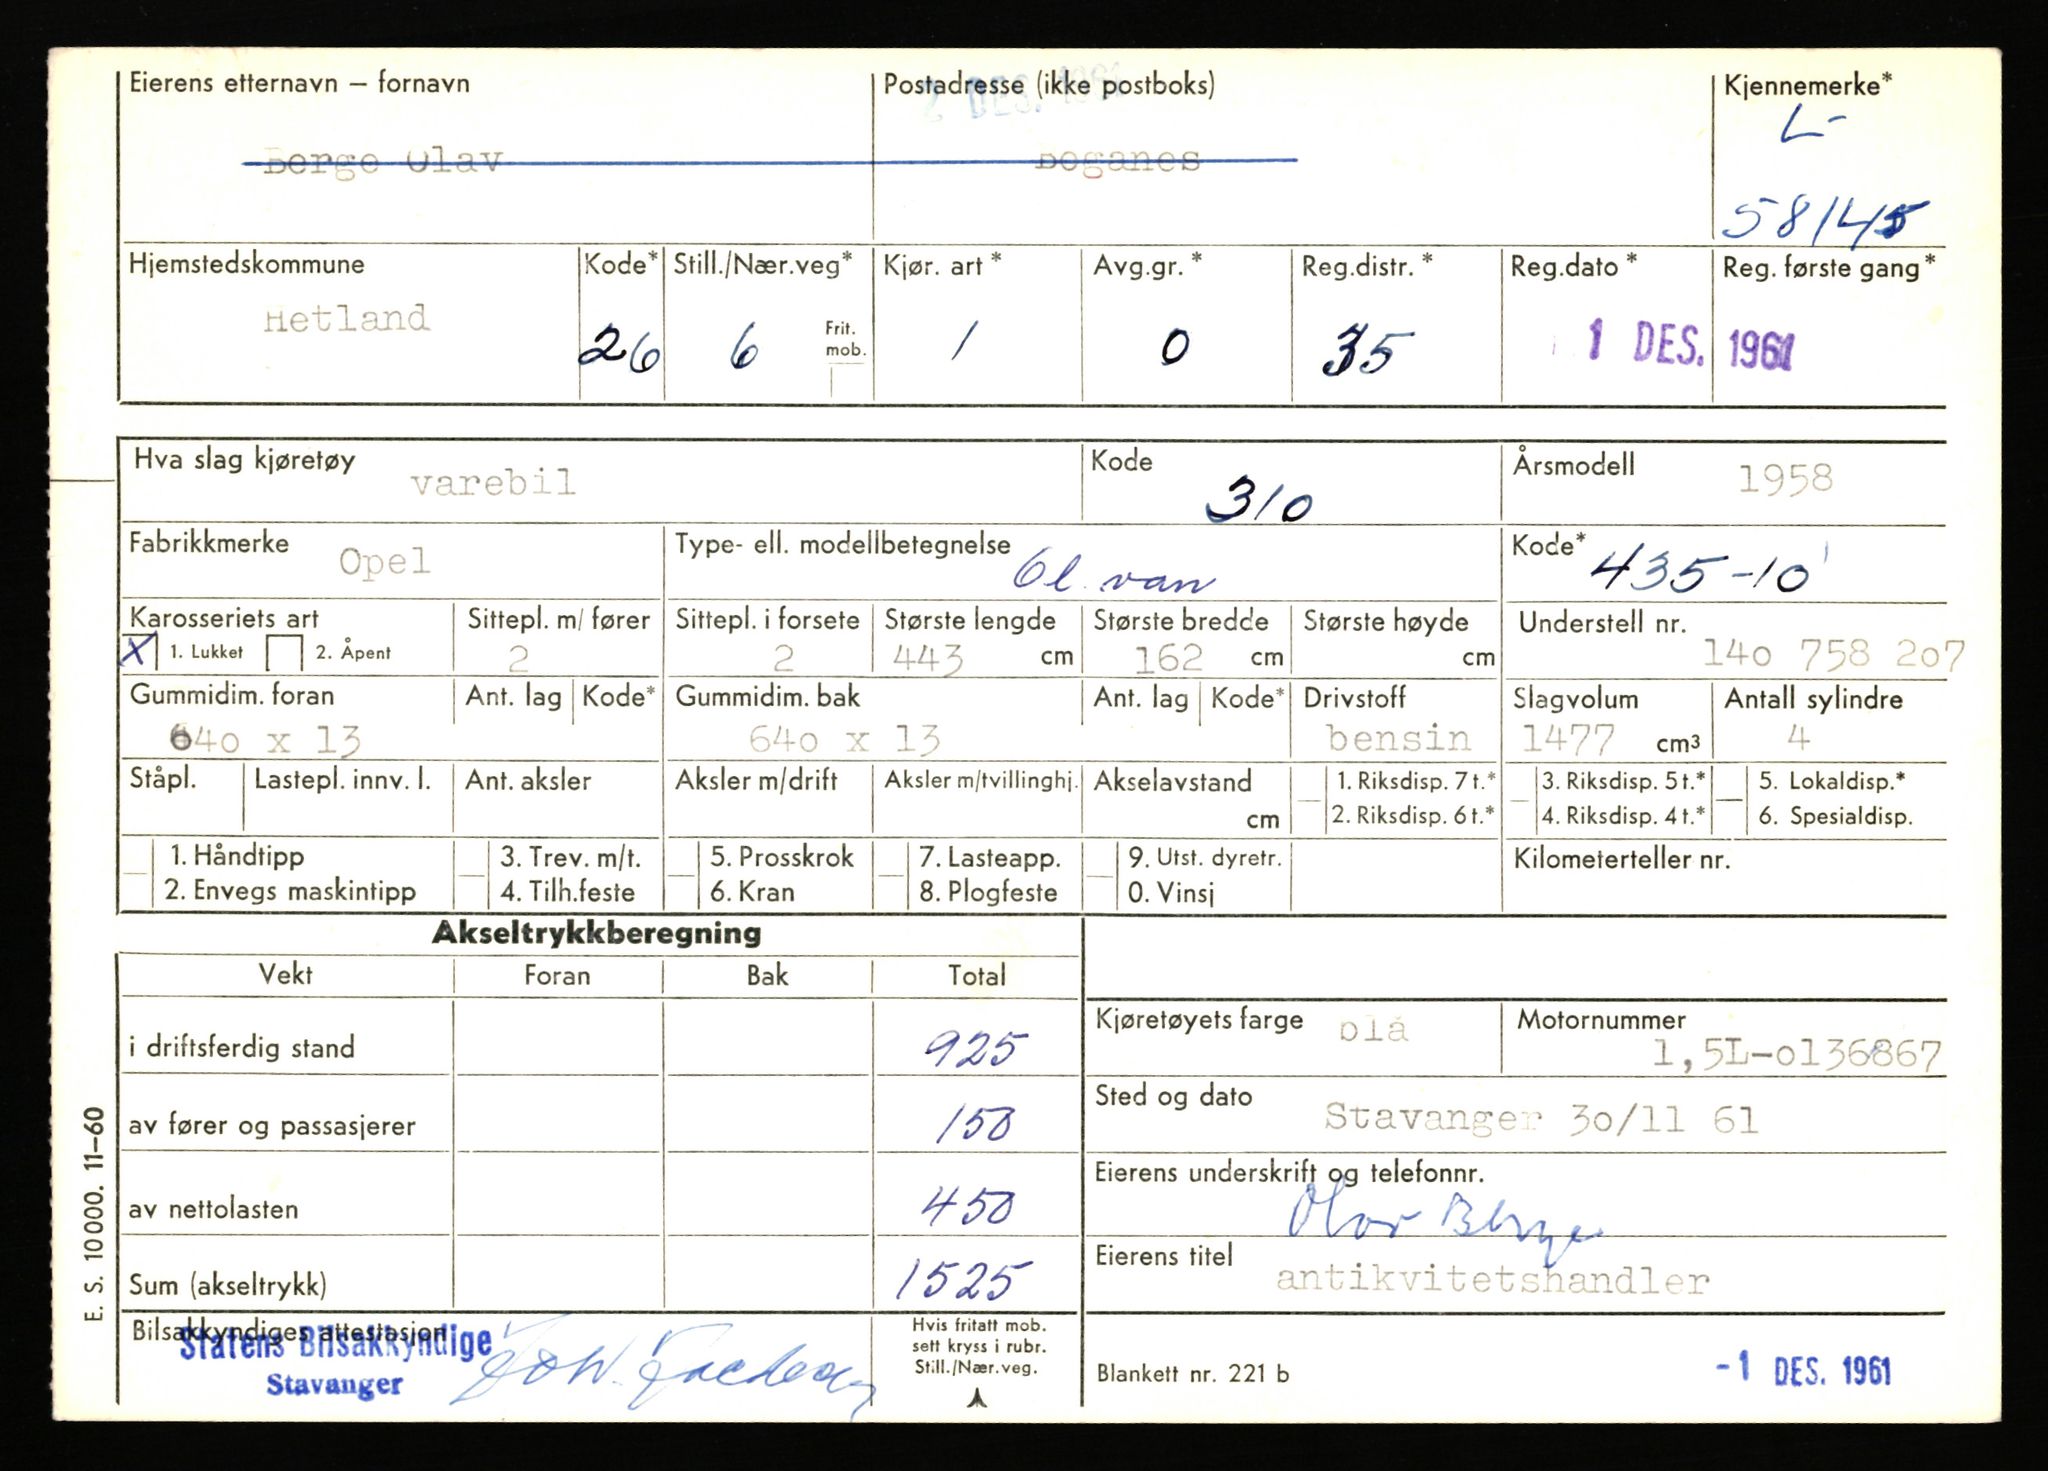 Eierens etternavn – fornavn
Postadresse (ikke postboks)
Kjennemerke*
DES. 1961
L-
Berge Olav
Boganes
58145
Hjemstedskommune
Kode*
Still./Nær.veg*
Kjør. art*
Avg.gr.*
Reg.distr.*
Reg.dato*
Reg. første gang*
Hetland
26
6
Frit. mob.
1
0
35
1 DES. 1961
Hva slag kjøretøy
varebil
Kode
310
Årsmodell
1958
Fabrikkmerke
Opel
Type- ell. modellbetegnelse
Ol. van
Kode*
435-10
Karosseriets art
Sittepl. m/ fører
Sittepl. i forsete
Største lengde
Største bredde
Største høyde
Understell nr.
X 1. Lukket
2. Åpent
2
2
443 cm
162 cm
cm
140 758 207
Gummidim. foran
Ant. lag
Kode*
Gummidim. bak
Ant. lag
Kode*
Drivstoff
Slagvolum
Antall sylindre
640 x 13
640 x 13
bensin
1477 cm³
4
Ståpl.
Lastepl. innv. l.
Ant. aksler
Aksler m/drift
Aksler m/tvillinghj.
Akselavstand
cm
1. Riksdisp. 7 t.*
2. Riksdisp. 6 t.*
3. Riksdisp. 5 t.*
4. Riksdisp. 4 t.*
5. Lokaldisp.*
6. Spesialdisp.
1. Håndtipp
2. Envegs maskintipp
3. Trev. m/t.
4. Tilh.feste
5. Prosskrok
6. Kran
7. Lasteapp.
8. Plogfeste
9. Utst. dyretr.
0. Vinsj
Kilometerteller nr.
Akseltrykkberegning
Vekt
Foran
Bak
Total
i driftsferdig stand
925
av fører og passasjerer
150
av nettolasten
450
Sum (akseltrykk)
1525
Kjøretøyets farge
blå
Motornummer
1,5L-0136867
Sted og dato
Stavanger 30/11 61
Eierens underskrift og telefonnr.
Olav Berge
Eierens titel
antikvitetshandler
Bilsakkyndiges attestasjon
Statens Bilsakkyndige
Stavanger
Hvis fritatt mob.
sett kryss i rubr.
Still./Nær.veg.
Blankett nr. 221 b
-1 DES. 1961
E. S. 10000. 11–60